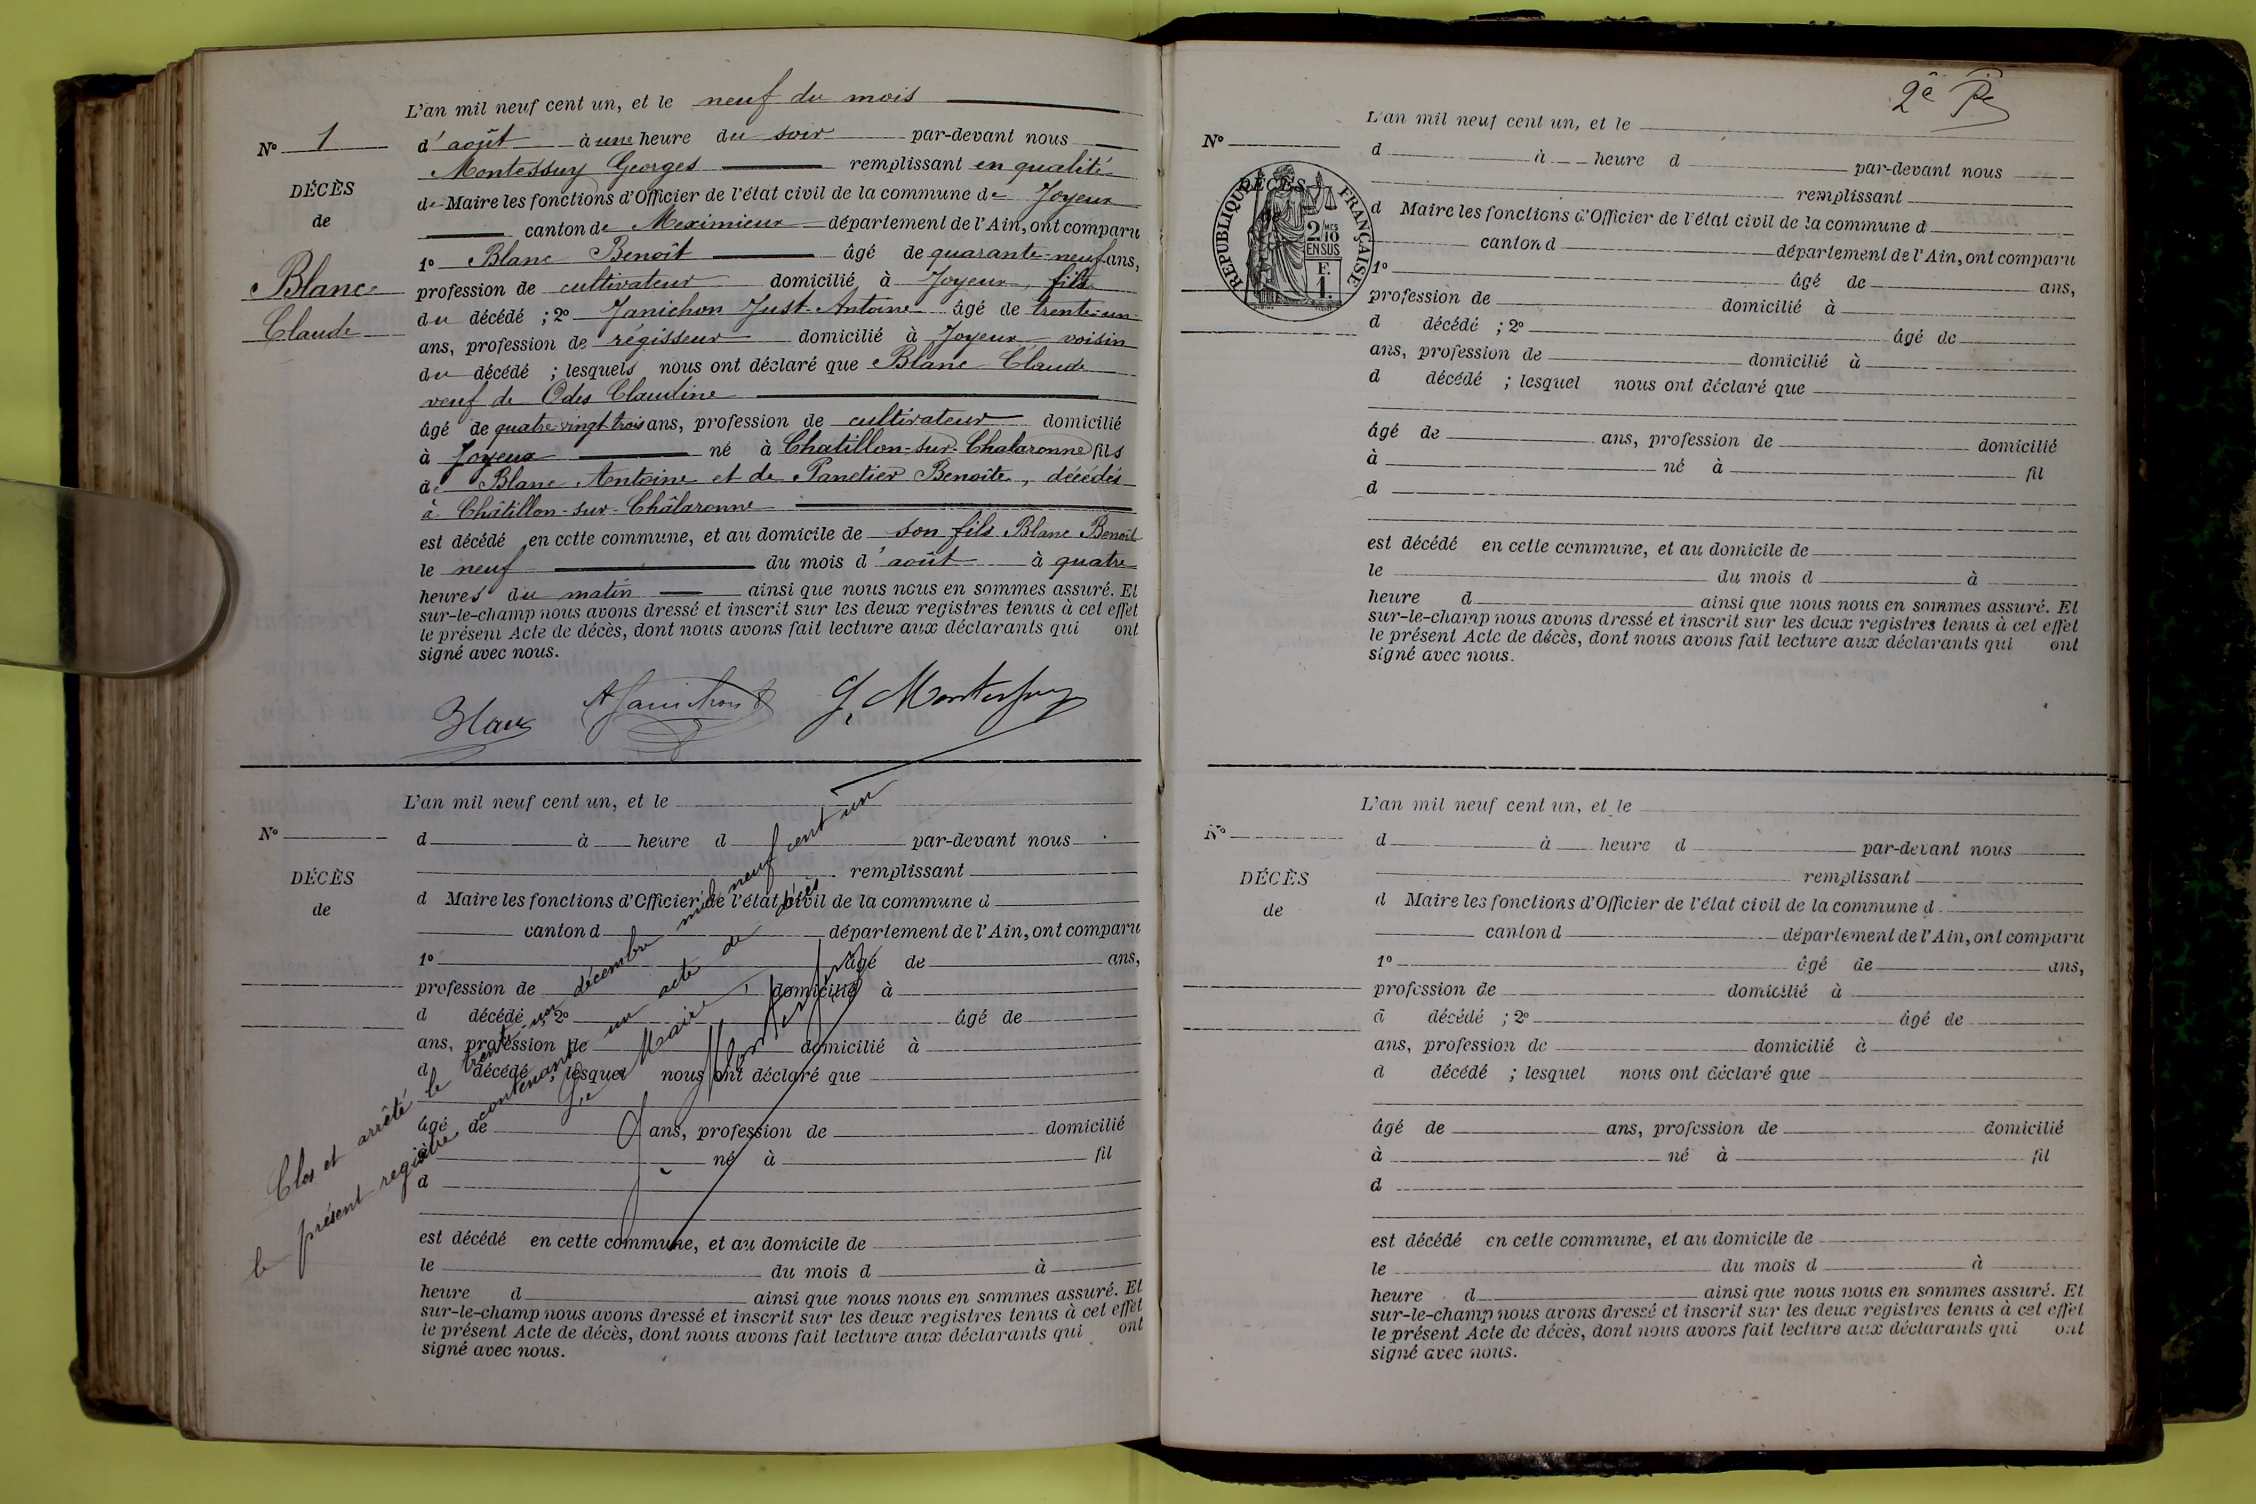 L'an mil neuf cent un, et le neuf du mois
N° 1
d'août à une heure du soir par-devant nous
Montessuy Georges remplissant en qualité
DÉCÈS
de
Blanc
Claude
de Maire les fonctions d'Officier de l'état civil de la commune de Joyeux
canton de Meximieux département de l'Ain, ont comparu
1° Blanc Benoît âgé de quarante-neuf ans,
profession de cultivateur domicilié à Joyeux, fils
du décédé ; 2° Janichon Just-Antoine âgé de trente-un
ans, profession de régisseur domicilié à Joyeux voisin
du décédé ; lesquels nous ont déclaré que Blanc Claude
veuf de Odes Claudine
âgé de quatre vingt trois ans, profession de cultivateur domicilié
à Joyeux né à Chatillon-sur-Chalaronne fils
de Blanc Antoine et de Panetier Benoîte, décédés
à Châtillon-sur-Châlaronne
est décédé en cette commune, et au domicile de son fils Blanc Benoît
le neuf du mois d'août à quatre
heures du matin ainsi que nous nous en sommes assuré. Et
sur-le-champ nous avons dressé et inscrit sur les deux registres tenus à cet effet
le présent Acte de décès, dont nous avons fait lecture aux déclarants qui ont
signé avec nous.
Blanc A Janichon G. Montessuy
L'an mil neuf cent un, et le
N°
d à heure d par-devant nous
remplissant
DÉCÈS
de
d Maire les fonctions d'Officier de l'état civil de la commune d
canton d département de l'Ain, ont comparu
1° âgé de ans,
profession de domicilié à
d décédé ; 2° âgé de
ans, profession de domicilié à
d décédé ; lesquel nous ont déclaré que
âgé de ans, profession de domicilié
à né à fil
d
est décédé en cette commune, et au domicile de
le du mois d à
heure d ainsi que nous nous en sommes assuré. Et
sur-le-champ nous avons dressé et inscrit sur les deux registres tenus à cet effet
le présent Acte de décès, dont nous avons fait lecture aux déclarants qui ont
signé avec nous.
Clos et arrêté le trente-un décembre mil neuf cent un
le présent registre contenant un acte de décès
Le Maire,
G. Montessuy
2e
L'an mil neuf cent un, et le
N°
d à heure d par-devant nous
remplissant
DÉCÈS
RÉPUBLIQUE FRANÇAISE
2/10 MES
EN SUS
F.
1.
d Maire les fonctions d'Officier de l'état civil de la commune d
canton d département de l'Ain, ont comparu
1° âgé de ans,
profession de domicilié à
d décédé ; 2° âgé de
ans, profession de domicilié à
d décédé ; lesquel nous ont déclaré que
âgé de ans, profession de domicilié
à né à fil
d
est décédé en cette commune, et au domicile de
le du mois d à
heure d ainsi que nous nous en sommes assuré. Et
sur-le-champ nous avons dressé et inscrit sur les deux registres tenus à cet effet
le présent Acte de décès, dont nous avons fait lecture aux déclarants qui ont
signé avec nous.
L'an mil neuf cent un, et le
N°
d à heure d par-devant nous
remplissant
DÉCÈS
de
d Maire les fonctions d'Officier de l'état civil de la commune d
canton d département de l'Ain, ont comparu
1° âgé de ans,
profession de domicilié à
d décédé ; 2° âgé de
ans, profession de domicilié à
d décédé ; lesquel nous ont déclaré que
âgé de ans, profession de domicilié
à né à fil
d
est décédé en cette commune, et au domicile de
le du mois d à
heure d ainsi que nous nous en sommes assuré. Et
sur-le-champ nous avons dressé et inscrit sur les deux registres tenus à cet effet
le présent Acte de décès, dont nous avons fait lecture aux déclarants qui ont
signé avec nous.